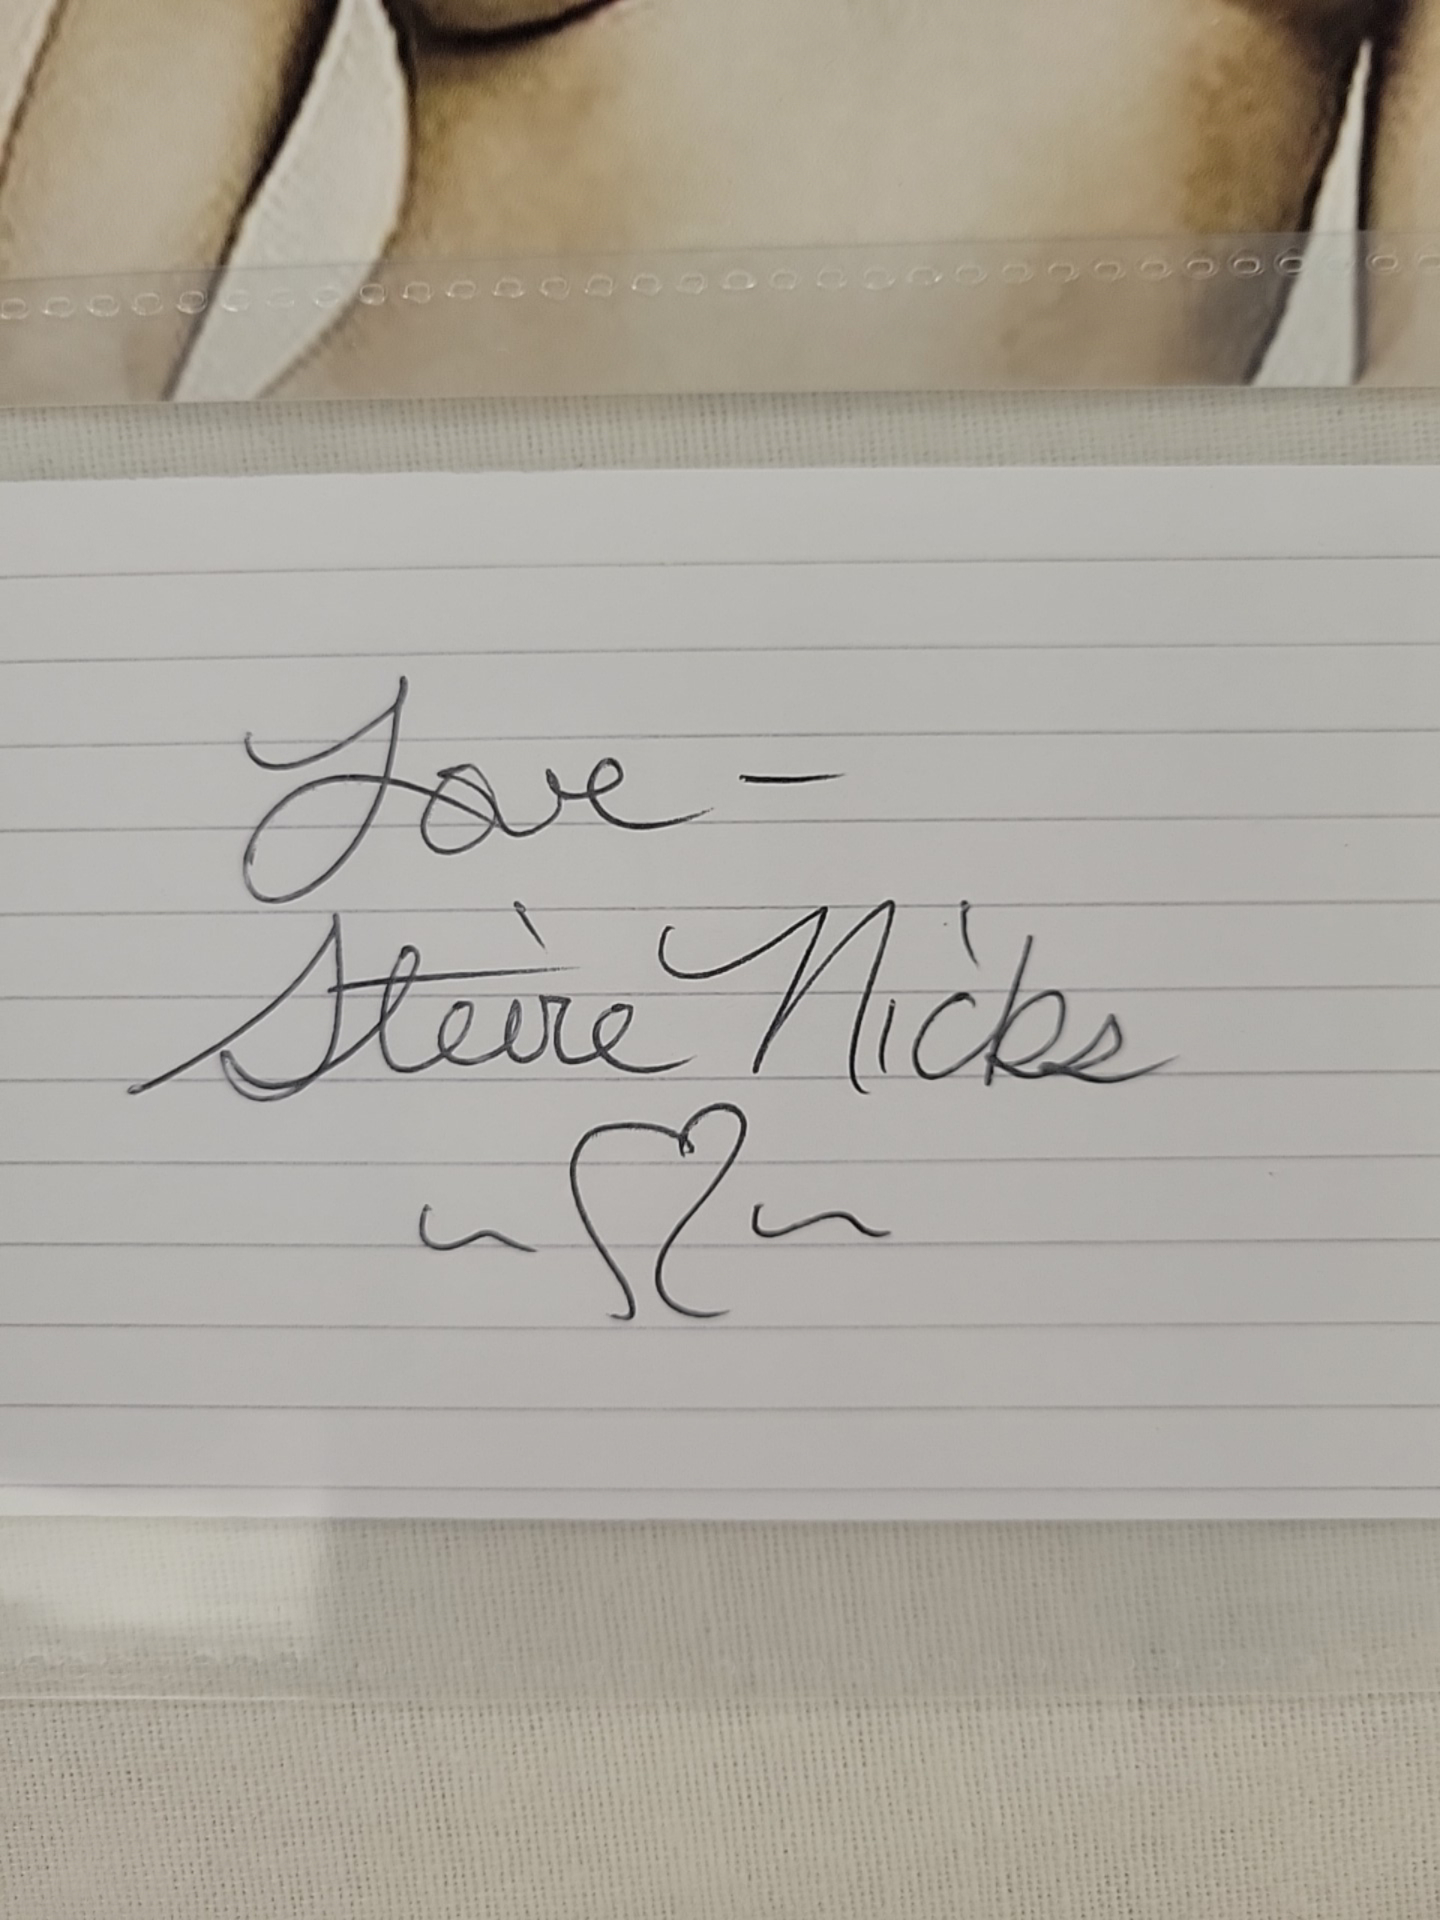 Love –
Stevie Nicks
~♡~